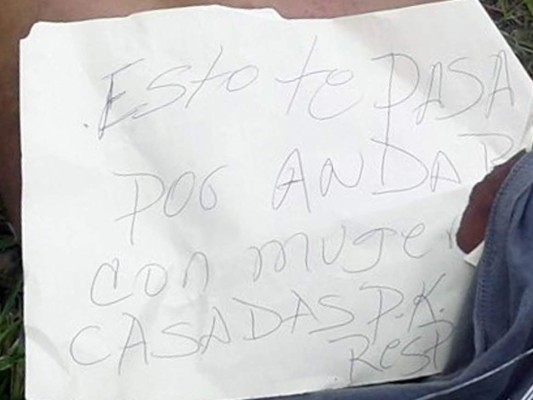 Esto te PASA
POR ANDAR
con mujer
CASADAS P.K.
RESP